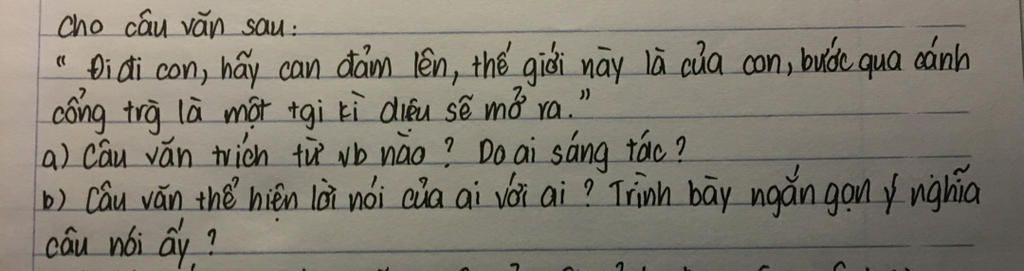 Cho câu văn sau:
" Đi đi con, hãy can đảm lên, thế giới này là của con, bước qua cánh
cổng trg là một tgi kì diệu sẽ mở ra."
a) Câu văn trích từ vb nào? Do ai sáng tác?
b) Câu văn thể hiện lời nói của ai với ai? Trình bày ngắn gọn ý nghĩa
câu nói ấy?